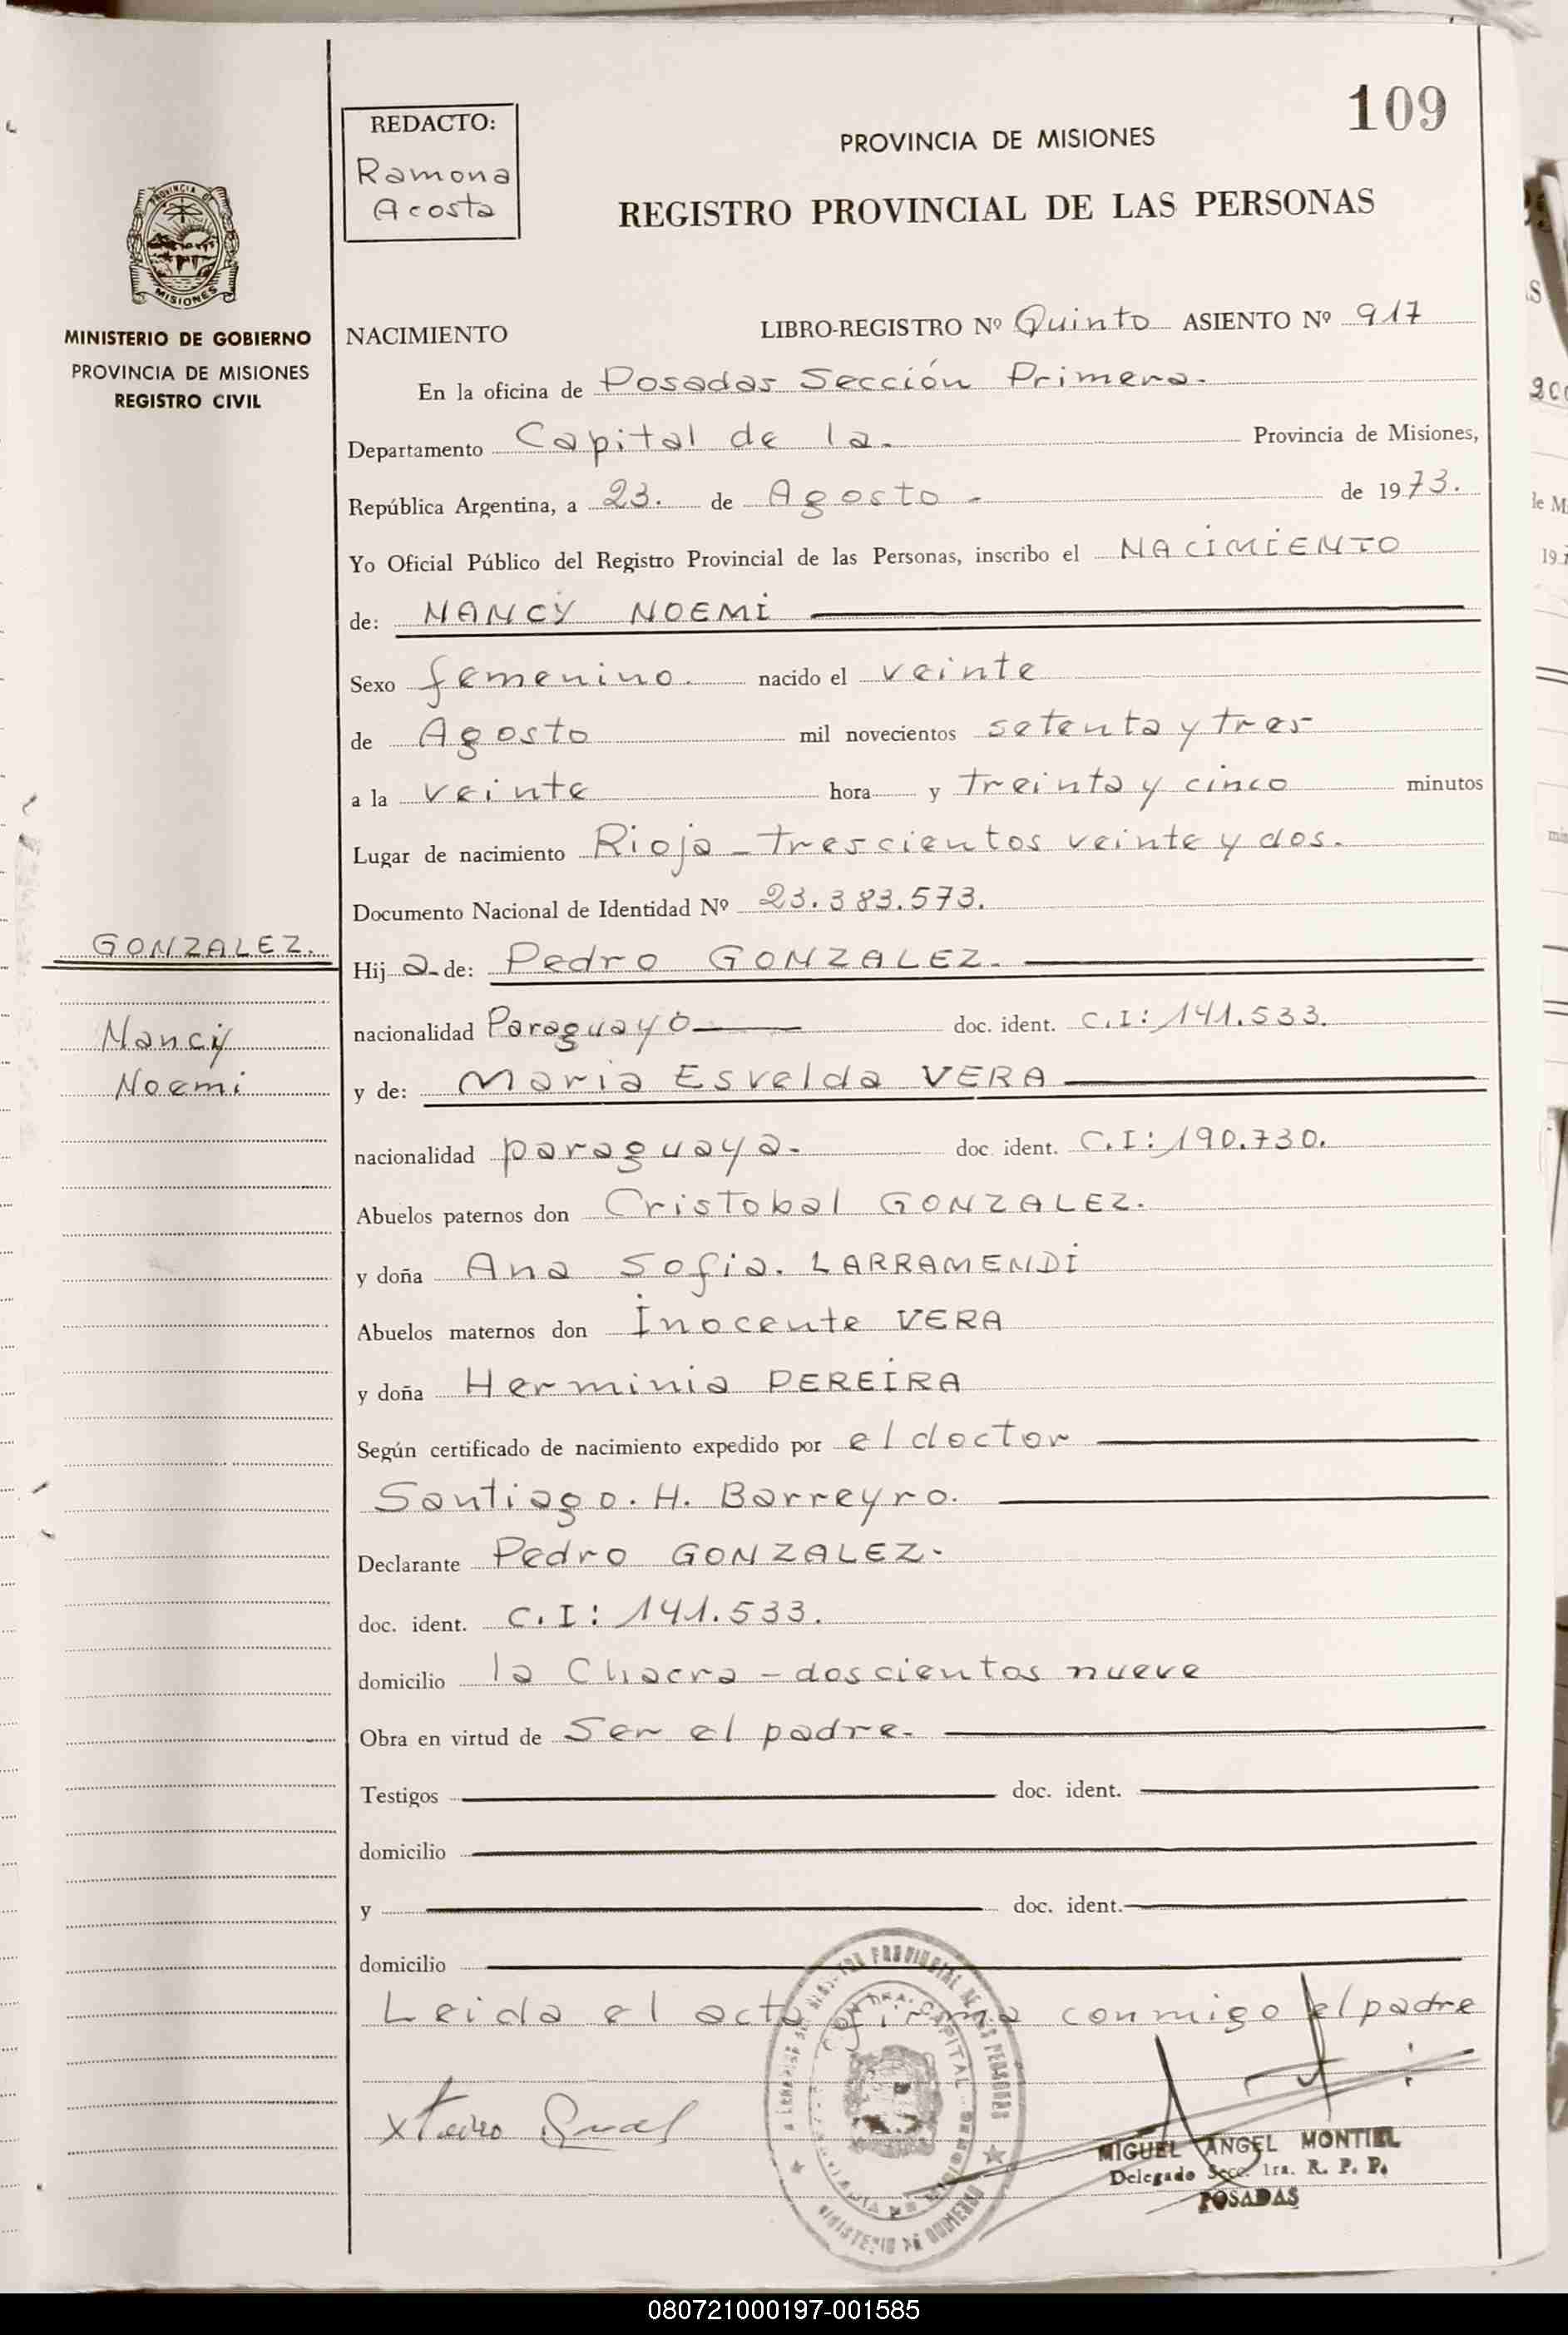 109
REDACTO:
Ramona
Acosta
PROVINCIA DE MISIONES
REGISTRO PROVINCIAL DE LAS PERSONAS
PROVINCIA DE
MISIONES
MINISTERIO DE GOBIERNO
PROVINCIA DE MISIONES
REGISTRO CIVIL
NACIMIENTO LIBRO-REGISTRO Nº Quinto ASIENTO Nº 917
En la oficina de Posadas Sección Primera.
Departamento Capital de la. Provincia de Misiones,
República Argentina, a 23. de Agosto - de 1973.
Yo Oficial Público del Registro Provincial de las Personas, inscribo el NACIMIENTO
de: NANCY NOEMI
Sexo femenino. nacido el veinte
de Agosto mil novecientos setenta y tres
a la veinte hora y treinta y cinco minutos
Lugar de nacimiento Rioja - trescientos veinte y dos.
Documento Nacional de Identidad Nº 23.383.573.
GONZALEZ.
Hij a de: Pedro GONZALEZ.
nacionalidad Paraguayo doc. ident. C.I: 141.533.
Nancy
Noemi
y de: Maria Esvelda VERA
nacionalidad paraguaya. doc. ident. C.I: 190.730.
Abuelos paternos don Cristobal GONZALEZ.
y doña Ana Sofia. LARRAMENDI
Abuelos maternos don Inocente VERA
y doña Herminia PEREIRA
Según certificado de nacimiento expedido por el doctor
Santiago. H. Barreyro.
Declarante Pedro GONZALEZ.
doc. ident. C.I: 141.533.
domicilio la Chacra - doscientos nueve
Obra en virtud de Ser el padre.
Testigos doc. ident.
domicilio
y doc. ident.
domicilio
Leida el acta firma conmigo el padre
MIGUEL ANGEL MONTIEL
Delegado Secc. 1ra. R. P. P.
POSADAS
080721000197-001585